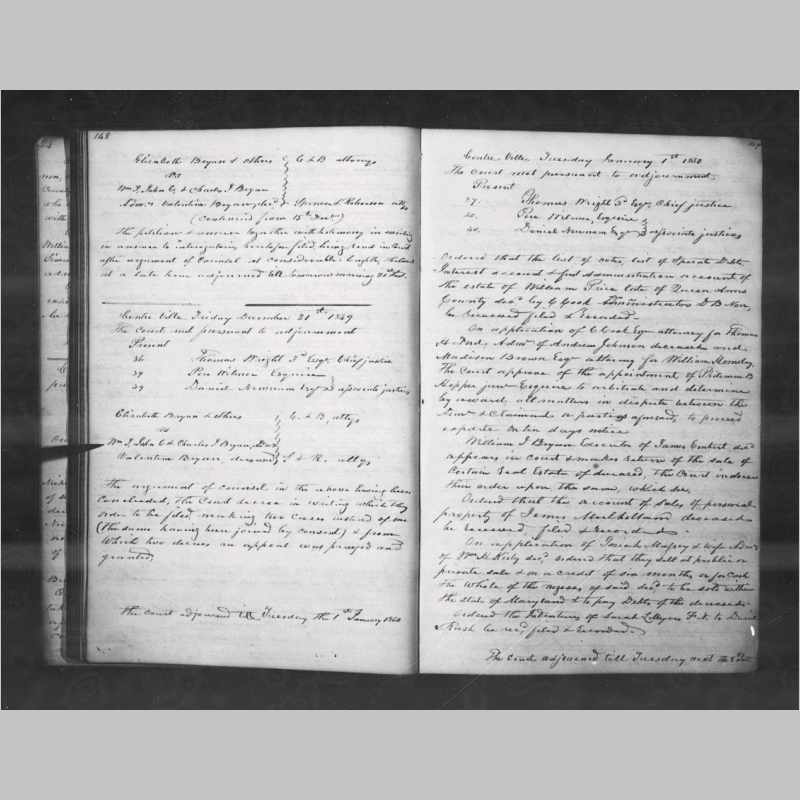 148
Elizabeth Bryan & others } C. & B. attorys
vs
Wm I, John C. & Charles I Bryan
Admrs Valentine Bryan, decd } Spencer & Roberson attys
(Continued from 18th Decr)
The petition & answer together with testimony in writing
in answer to interogatories heretofore filed, being read in Court
after argument of Counsel at considerable length, the court
at a late hour adjourned till tomorrow morning 21st Inst.
Centre Ville Friday December 21st 1849
The Court met pursuant to adjournment
Present
36 Thomas Wright 3d Esqr. Chief justice
39 Pere Wilmer Esquire
29 Daniel Newnam Esqr } associate justices
Elizabeth Bryan & others } C. & B. attys
vs
Wm I, John C & Charles I Bryan, Admrs
Valentine Bryan, deceased } S & R. attys
The argument of counsel in the above having been
concluded, the Court decree in writing which they
order to be filed, making two cases instead of one
(the same having been joined by consent) & from
which two decrees an appeal was prayed and
granted
The court adjourned till Tuesday the 1st January 1850
Centre Ville Tuesday January 1st 1850
The Court met pursuant to adjournment.
Present
37. Thomas Wright 3d Esqr. Chief justice
40. Pere Wilmer, Esquire
Daniel Newnam Esqr } associate justices
Ordered that the list of notes, list of Sperate Debts
Interest account & first Administration account of
the estate of William Price late of Queen Anns
County decd by G Good Administrator D.B. Non,
be received filed & Recorded.
On application of C Cook Esqr attorney for Thomas
H. Ford, Admr of Andrew Johnson deceased and
Madison Brown Esqr attorney for William Hemsley.
The Court approve of the appointment of
Hopper junr Esquire to arbitrate and determine
by award, all matters in dispute between the
Admr & Claimant or parties aforesaid, to proceed
exparte on ten days notice
William I Bryan Executor of James decd
appears in Court & makes return of the sale of
Certain Real Estate of deceased, the Court indorse
their order upon the same, which see.
Ordered that the account of sales of personal
property of James deceased
be received, filed & Recorded.
On application of & wife Admrs
of Wm H. Kirby decd, ordered that they sell at public or
private sale & on a credit of six months or for Cash
the whole of the negroes of said decd to be sold within
the state of Maryland & to pay Debts of the deceased.
Ordered the Indenture of Sarah to Daniel
Rush be recd, filed & Recorded.
The Court adjourned till Tuesday next the 8th Inst.